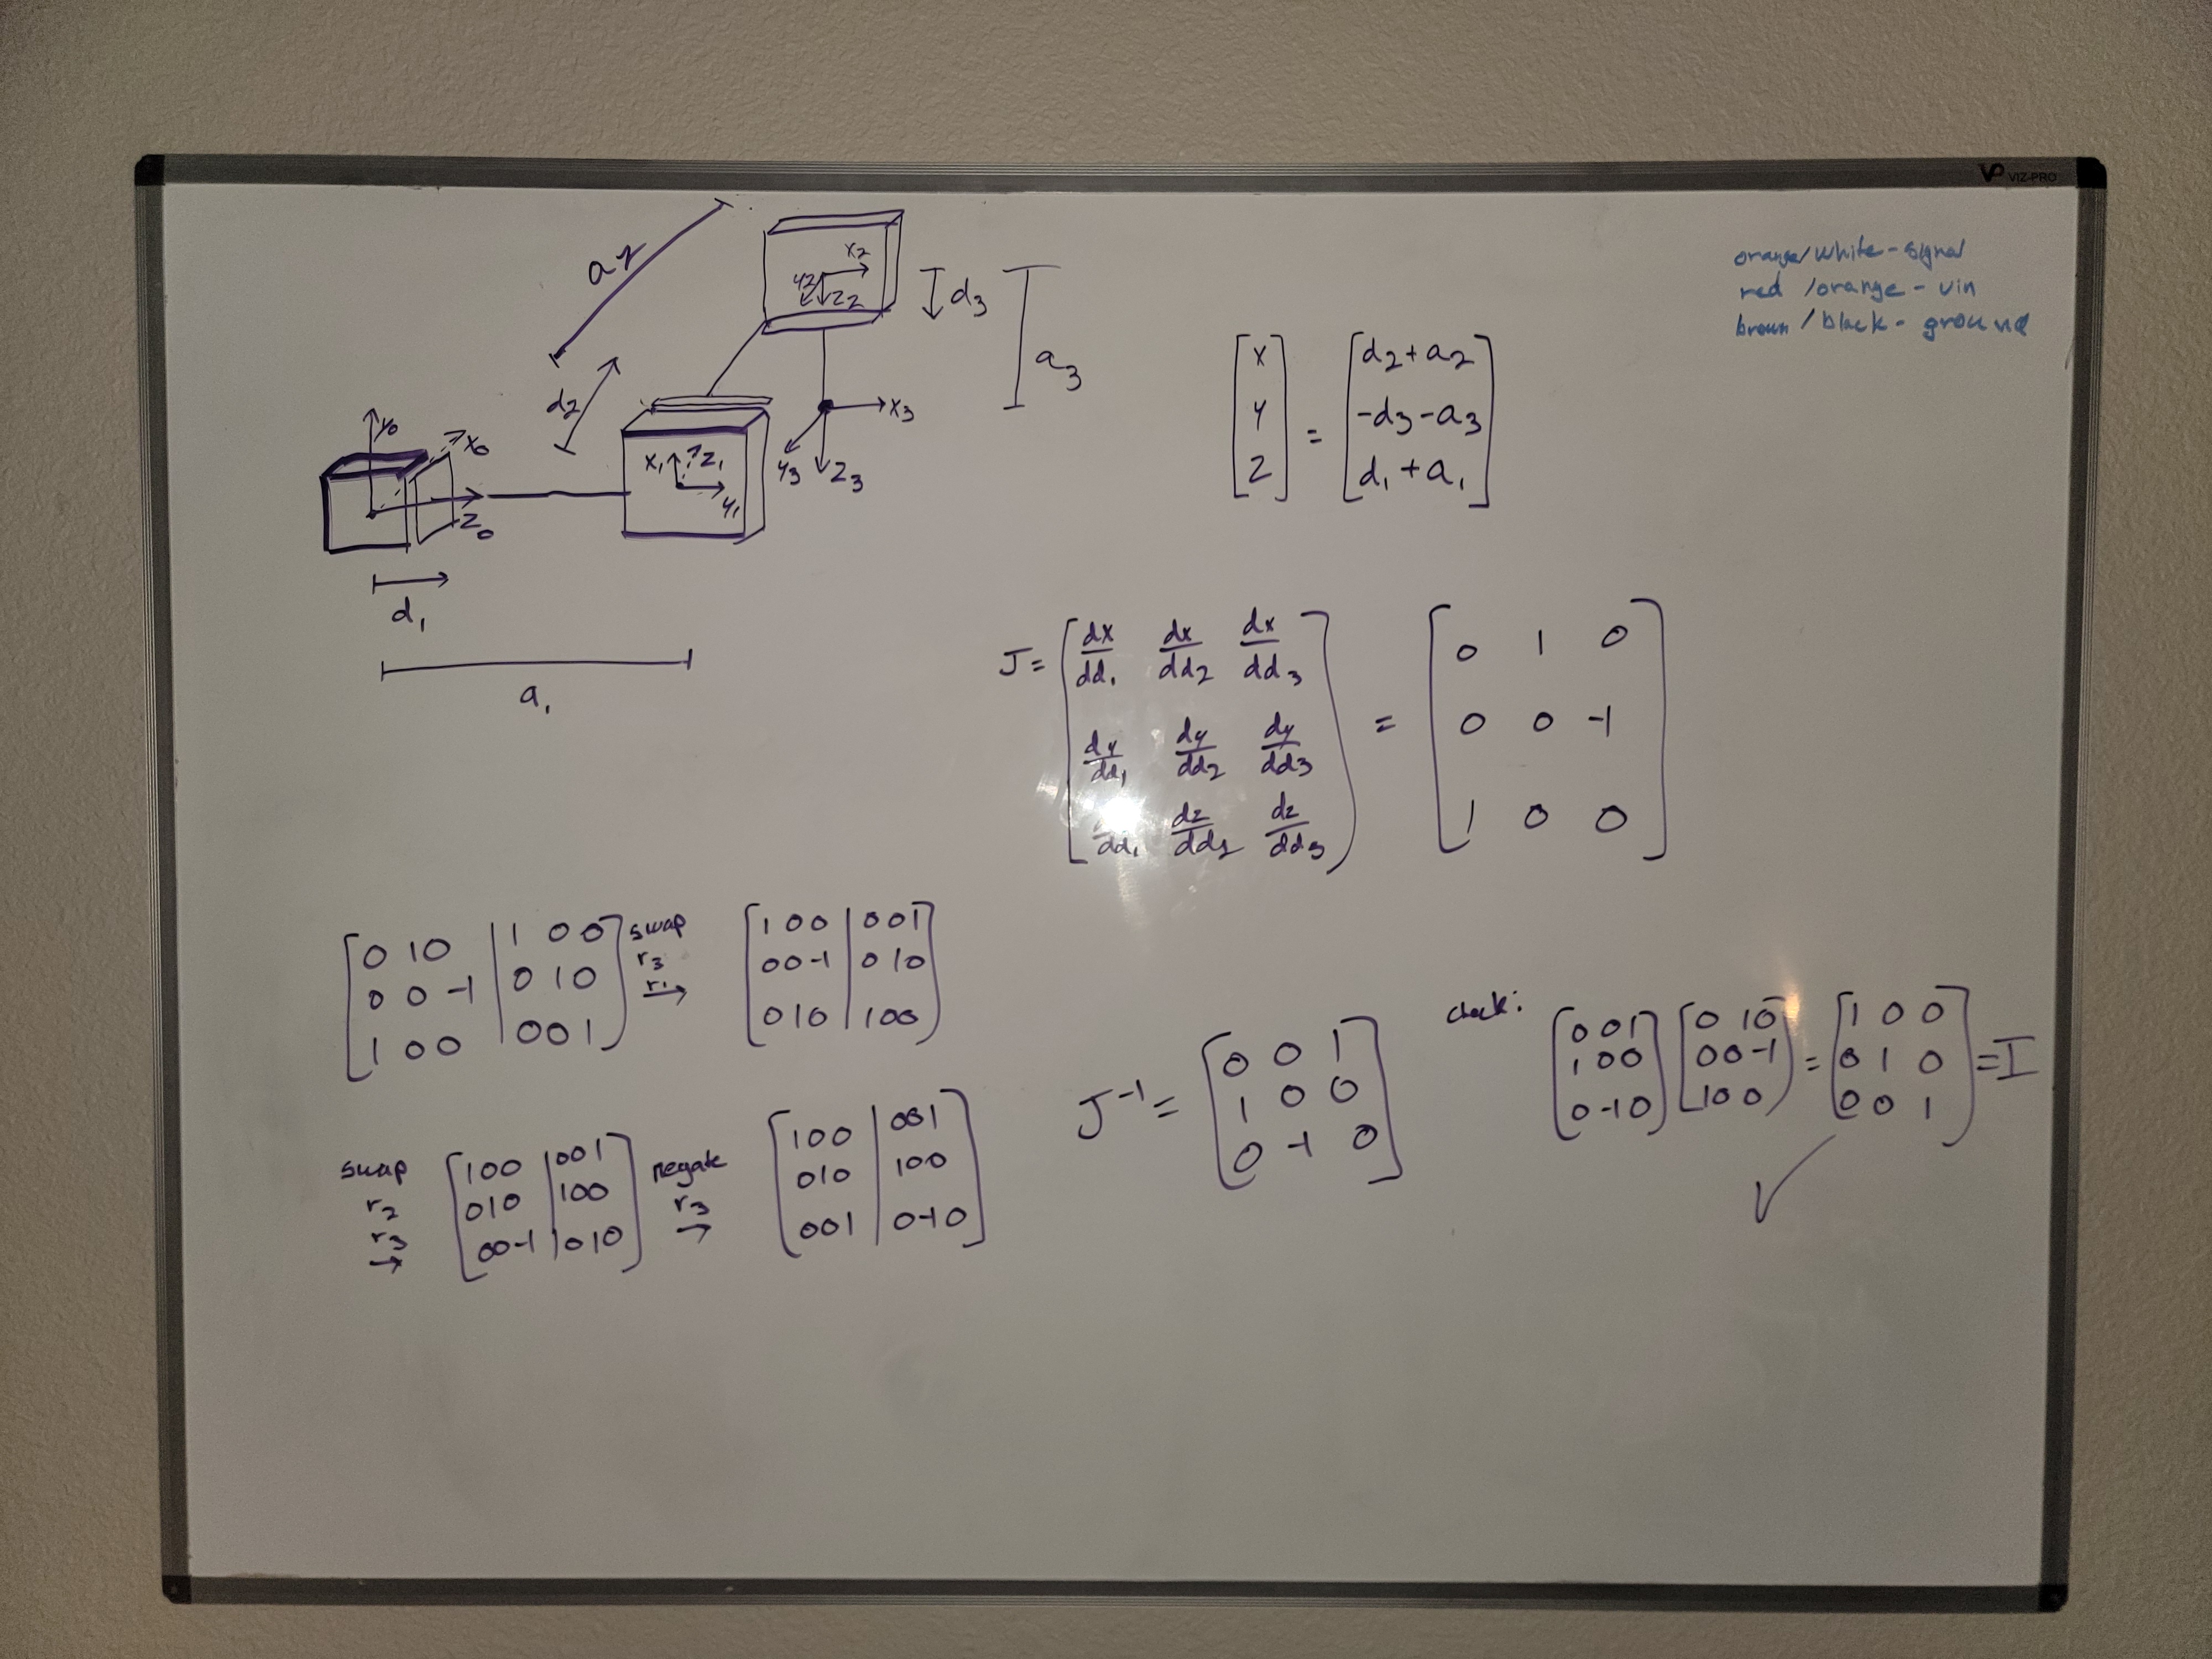 VP VIZ-PRO
orange/white - signal
red /orange - vin
brown / black - ground
a2
x2
y2
z2
d3
a3
d2
y0
x0
z0
x1
z1
y1
x3
y3
z3
d1
a1
[x] = [d2 + a2]
[y] [-d3 - a3]
[z] [d1 + a1]
J = [dx/dd1 dx/dd2 dx/dd3] = [0 1 0]
[dy/dd1 dy/dd2 dy/dd3] [0 0 -1]
[/dd1 dz/dd2 dz/dd3] [1 0 0]
[0 1 0 | 1 0 0]
[0 0 -1 | 0 1 0]
[1 0 0 | 0 0 1]
swap
r3
r1
→
[1 0 0 | 0 0 1]
[0 0 -1 | 0 1 0]
[0 1 0 | 1 0 0]
swap
r2
r3
→
[1 0 0 | 0 0 1]
[0 1 0 | 1 0 0]
[0 0 -1 | 0 1 0]
negate
r3
→
[1 0 0 | 0 0 1]
[0 1 0 | 1 0 0]
[0 0 1 | 0 -1 0]
J⁻¹ = [0 0 1]
[1 0 0]
[0 -1 0]
check:
[0 0 1] [0 1 0] = [1 0 0] = I
[1 0 0] [0 0 -1] [0 1 0]
[0 -1 0] [1 0 0] [0 0 1]
✓